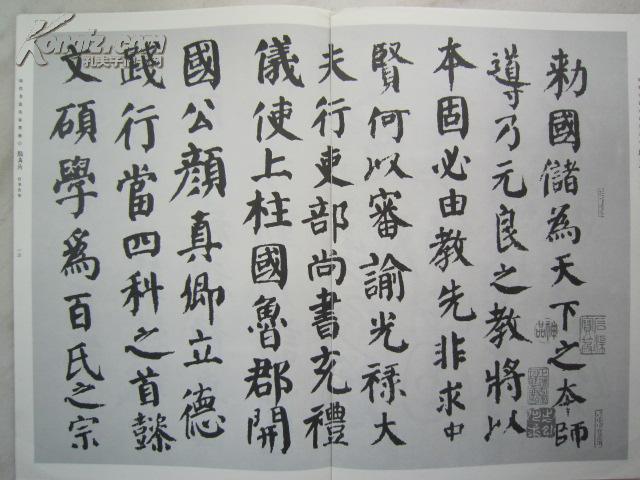 勑國儲為天下之本師
導乃元良之教將以
本固必由教先非求中
賢何以審諭光祿大
夫行吏部尚書充禮
儀使上柱國魯郡開
國公顏真卿立德
踐行當四科之首懿
文碩學為百氏之宗
Kongfz.com
孔夫子旧书网